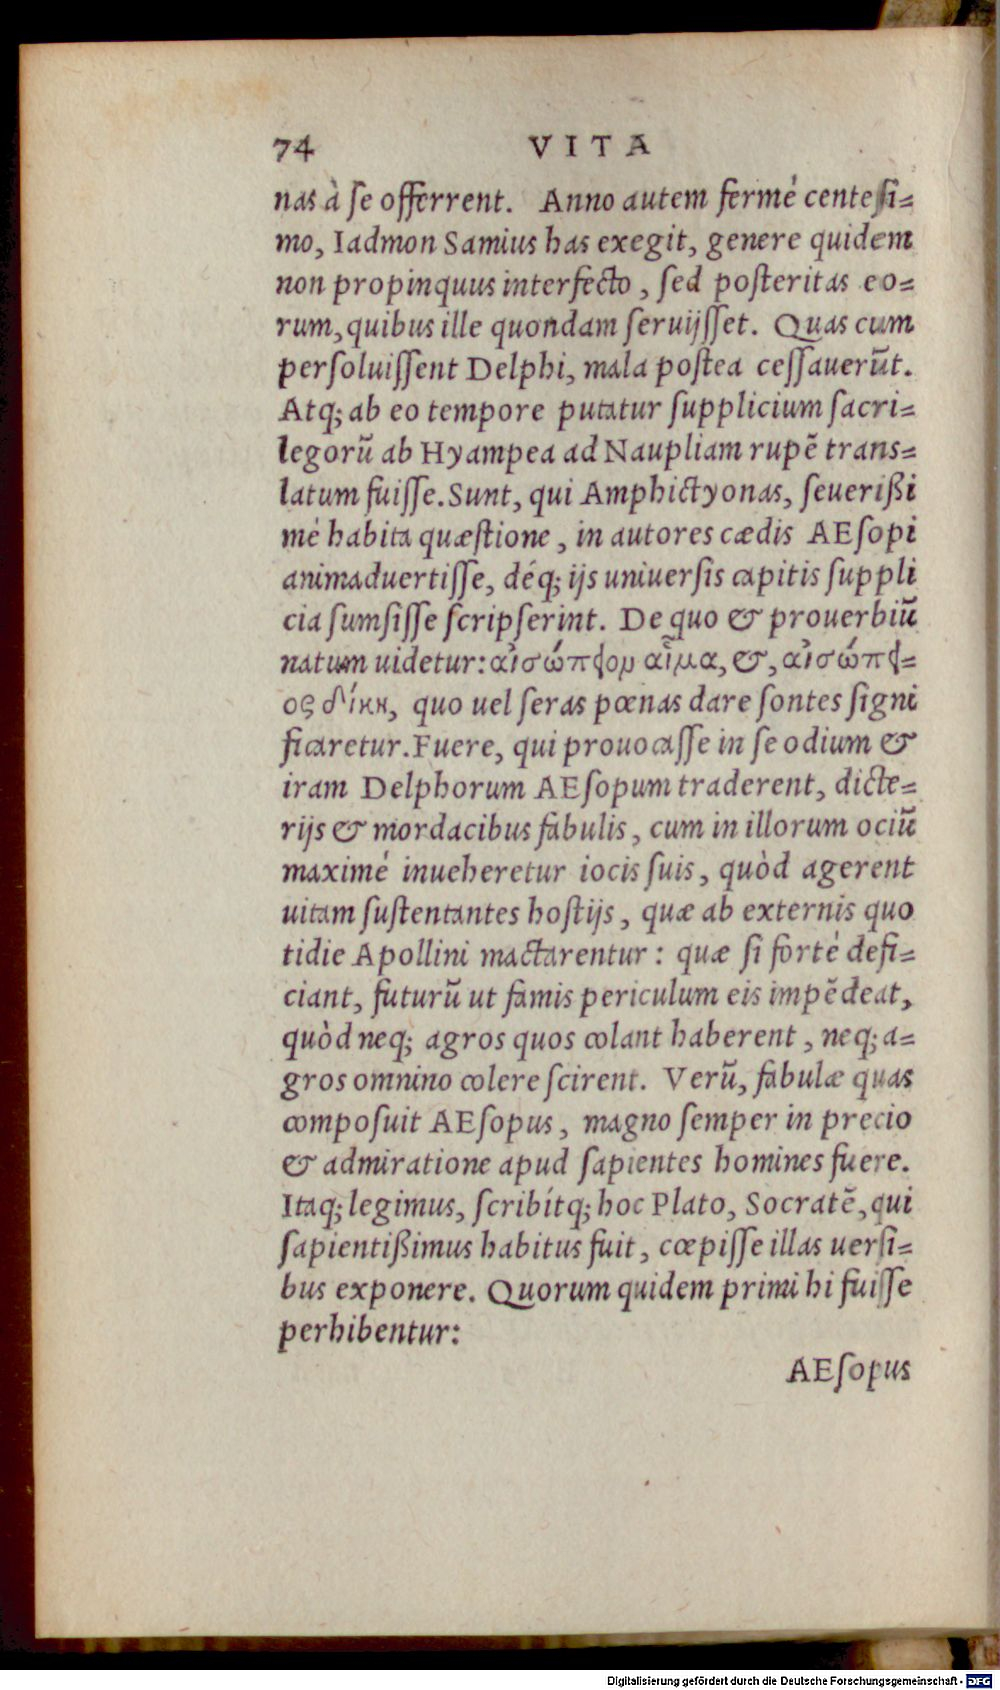 74 VITA
nas à ſe offerrent. Anno autem fermé centeſi-
mo, Iadmon Samius has exegit, genere quidem
non propinquus interfecto, ſed poſteritas eo-
rum, quibus ille quondam ſeruijſſet. Quas cum
perſoluiſſent Delphi, mala poſtea ceſſauerūt.
Atq; ab eo tempore putatur ſupplicium ſacri-
legorū ab Hyampea ad Naupliam rupē trans-
latum fuiſſe. Sunt, qui Amphictyonas, ſeuerißi
mé habita quæſtione, in autores cædis AEſopi
animaduertiſſe, déq; ijs uniuerſis capitis ſuppli
cia ſumſiſſe ſcripſerint. De quo & prouerbiū
natum uidetur: αἰσώπειον αἷμα, &, αἰσώπει-
ος δίκη, quo uel ſeras pœnas dare ſontes ſigni
ficaretur. Fuere, qui prouocaſſe in ſe odium &
iram Delphorum AEſopum traderent, dicte-
rijs & mordacibus fabulis, cum in illorum ociū
maximé inueheretur iocis ſuis, quòd agerent
uitam ſuſtentantes hoſtijs, quæ ab externis quo
tidie Apollini mactarentur: quæ ſi forté defi-
ciant, futurū ut famis periculum eis impēdeat,
quòd neq; agros quos colant haberent, neq; a-
gros omnino colere ſcirent. Verū, fabulæ quas
compoſuit AEſopus, magno ſemper in precio
& admiratione apud ſapientes homines fuere.
Itaq; legimus, ſcribítq; hoc Plato, Socratē, qui
ſapientißimus habitus fuit, cœpiſſe illas uerſi-
bus exponere. Quorum quidem primi hi fuiſſe
perhibentur:
AEſopus
Digitalisierung gefördert durch die Deutsche Forschungsgemeinschaft - DFG